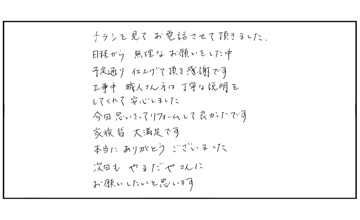 チラシを見てお電話させて頂きました。
日程から 無理なお願いをした中
予定通り 仕上げて頂き感謝です
工事中 職人さん方は 丁寧な説明を
してくれて 安心しました
今回思いきってリフォームして良かったです
家族皆 大満足です
本当に ありがとう ございました
次回も やまだやさんに
お願いしたいと思います